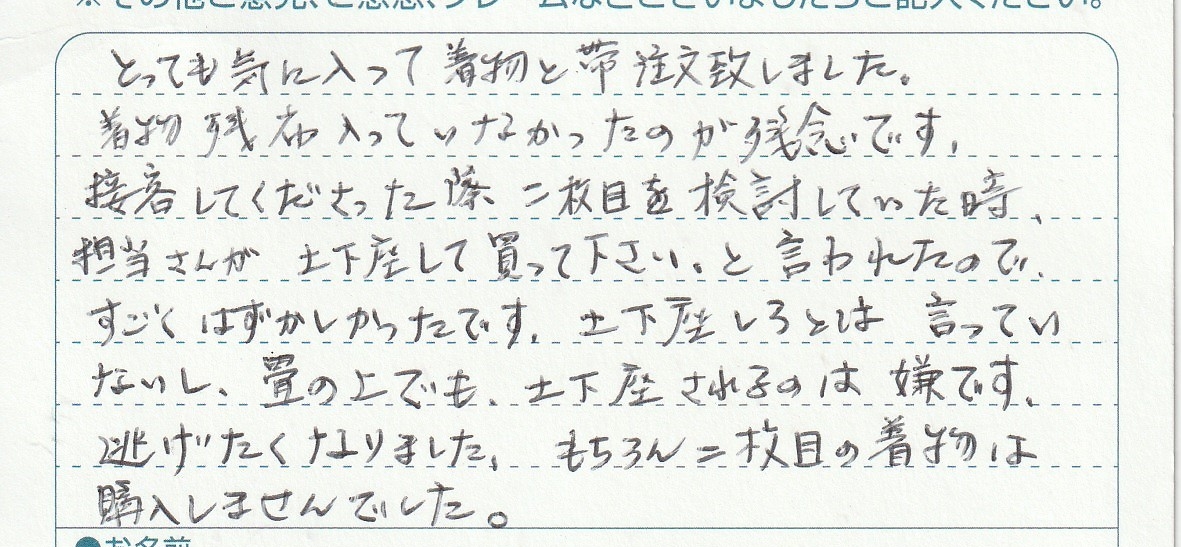 ※その他ご意見、ご感想、クレームなどございましたらご記入ください。
とっても気に入って着物と帯注文致しました。
着物残布入っていなかったのが残念です。
接客してくださった際二枚目を検討していた時、
担当さんが土下座して買って下さい。と言われたので、
すごくはずかしかったです。土下座しろとは言ってい
ないし、畳の上でも、土下座されるのは嫌です。
逃げたくなりました。もちろん二枚目の着物は
購入しませんでした。
●お名前